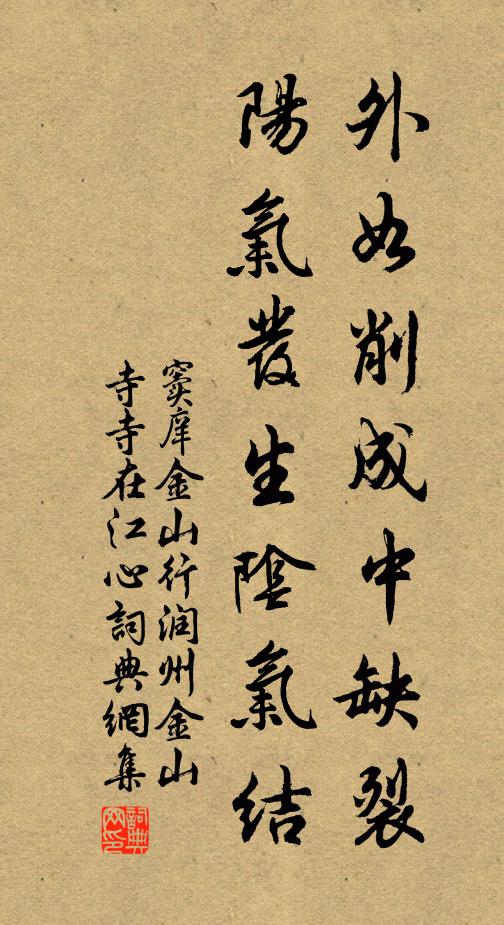 外如削成中缺裂
陽氣發生陰氣結
窦庠金山行润州金山
寺寺在江心詞典網集
詞典网印